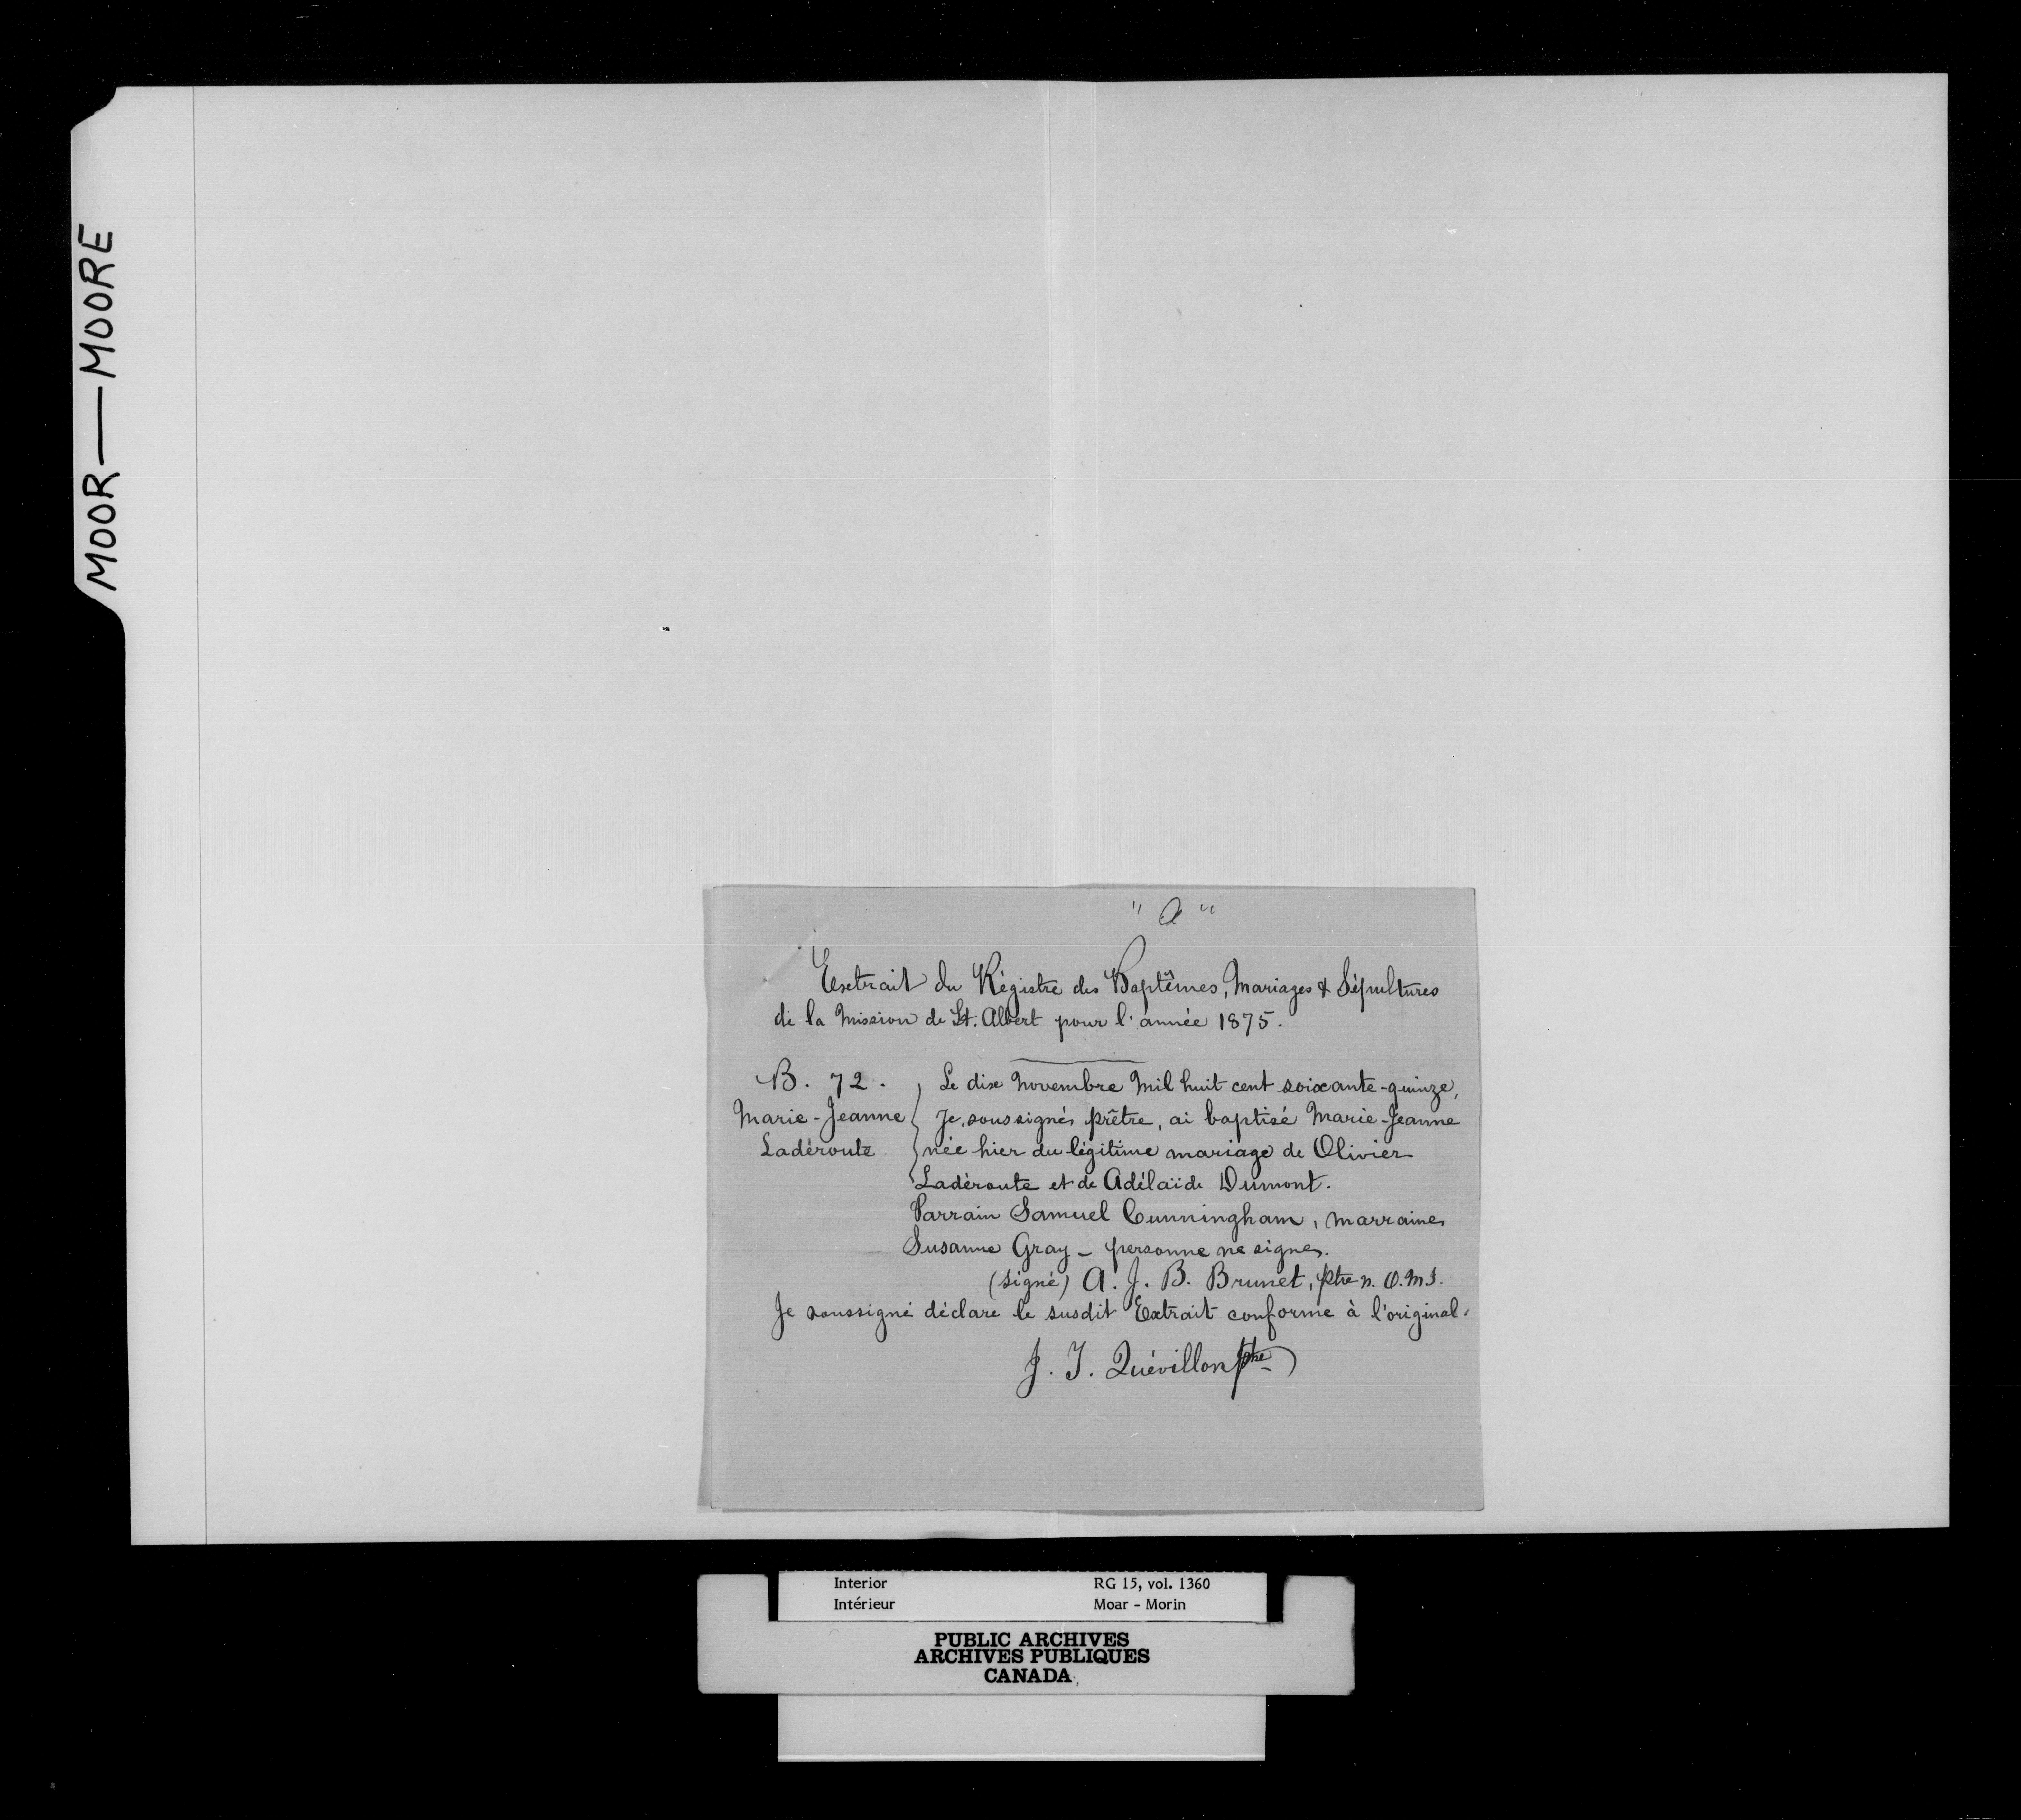 MOOR — MOORE
" a "
Extrait du Régistre des Baptêmes, Mariages & Sépultures
de la Mission de St. Albert pour l'année 1875.
B. 72.
Marie-Jeanne
Ladéroute
Le dix Novembre Mil huit cent soixante-quinze,
Je, soussigné, prêtre, ai baptisé Marie-Jeanne
née hier du légitime mariage de Olivier
Ladéroute et de Adélaïde Dumont.
Parrain Samuel Cunningham, marraine
Susanne Gray - personne ne signe.
(signé) A. J. B. Brunet, ptre n. O.M.I.
Je soussigné déclare le susdit Extrait conforme à l'original.
J. J. Quévillon ptre
Interior RG 15, vol. 1360
Intérieur Moar - Morin
PUBLIC ARCHIVES
ARCHIVES PUBLIQUES
CANADA